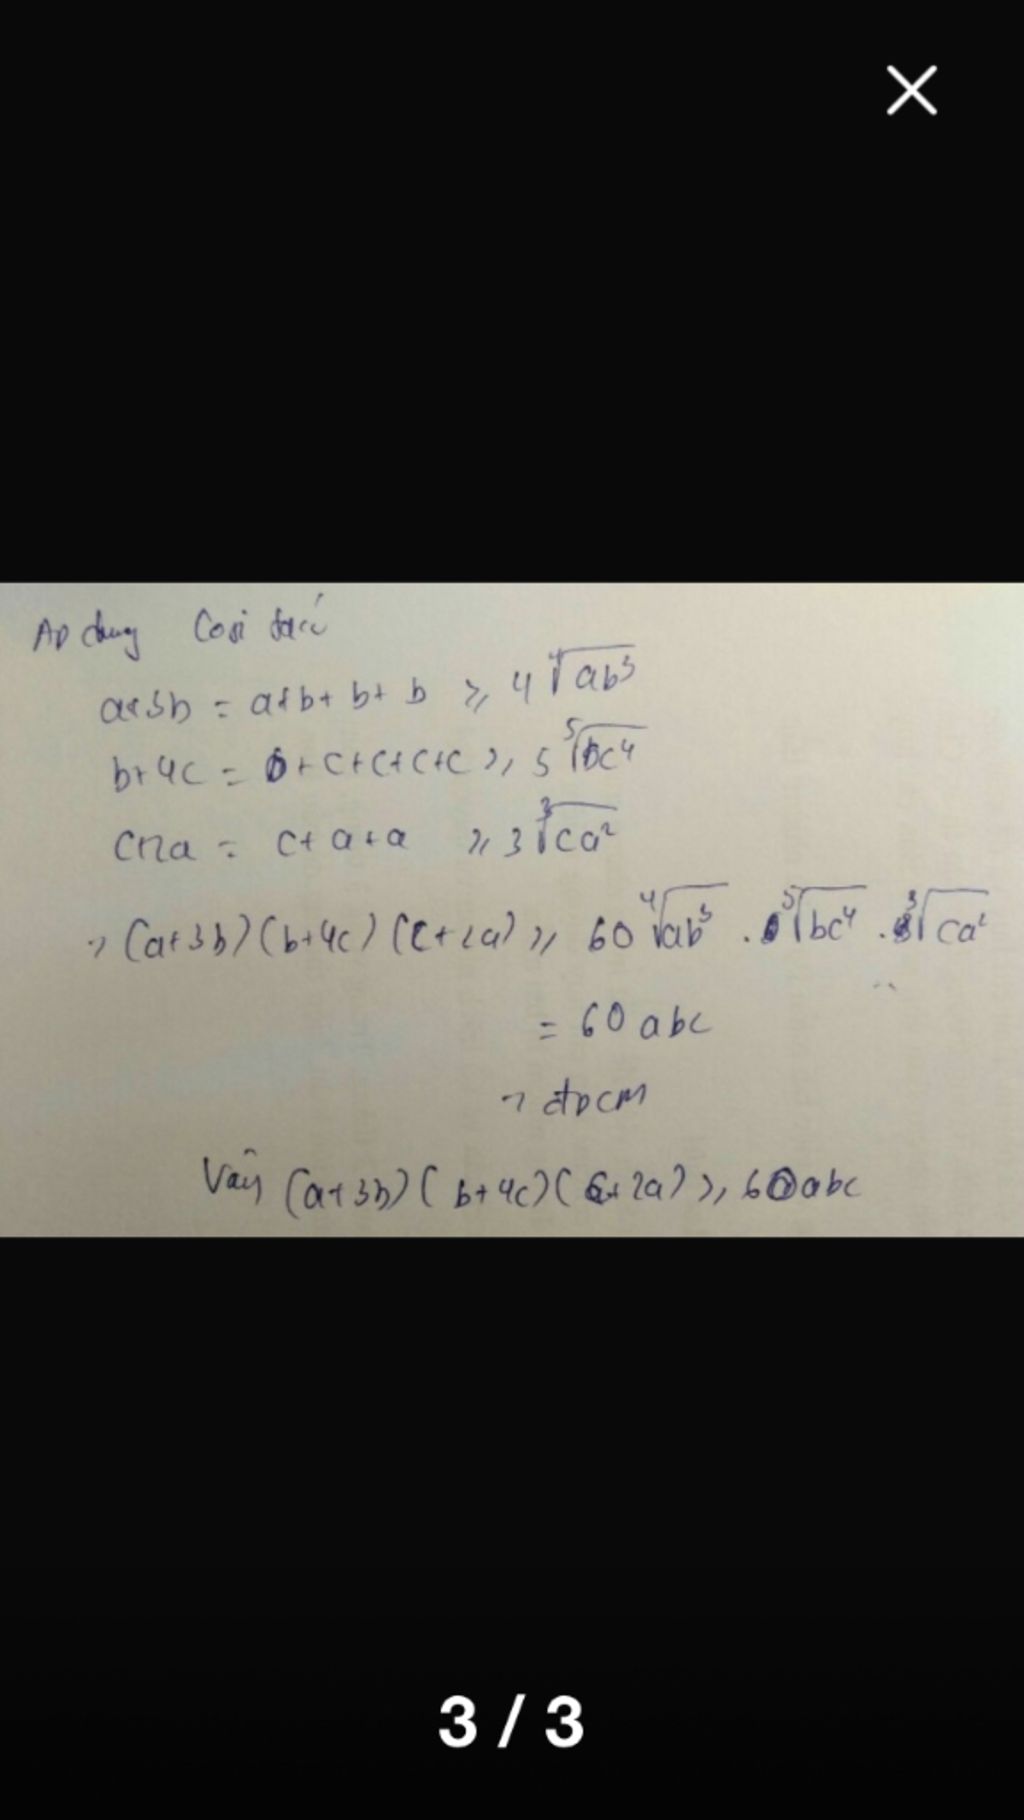 Áp dụng Cosi ta có
a+3b = a+b+b+b ≥ 4∜ab³
b+4c = b+c+c+c+c ≥ 5 ⁵√bc⁴
c+2a = c+a+a ≥ 3∛ca²
⇒ (a+3b)(b+4c)(c+2a) ≥ 60 ∜ab³ . ⁵√bc⁴ . ∛ca²
= 60abc
⇒ đpcm
Vậy (a+3b)(b+4c)(c+2a) ≥ 60abc
3 / 3